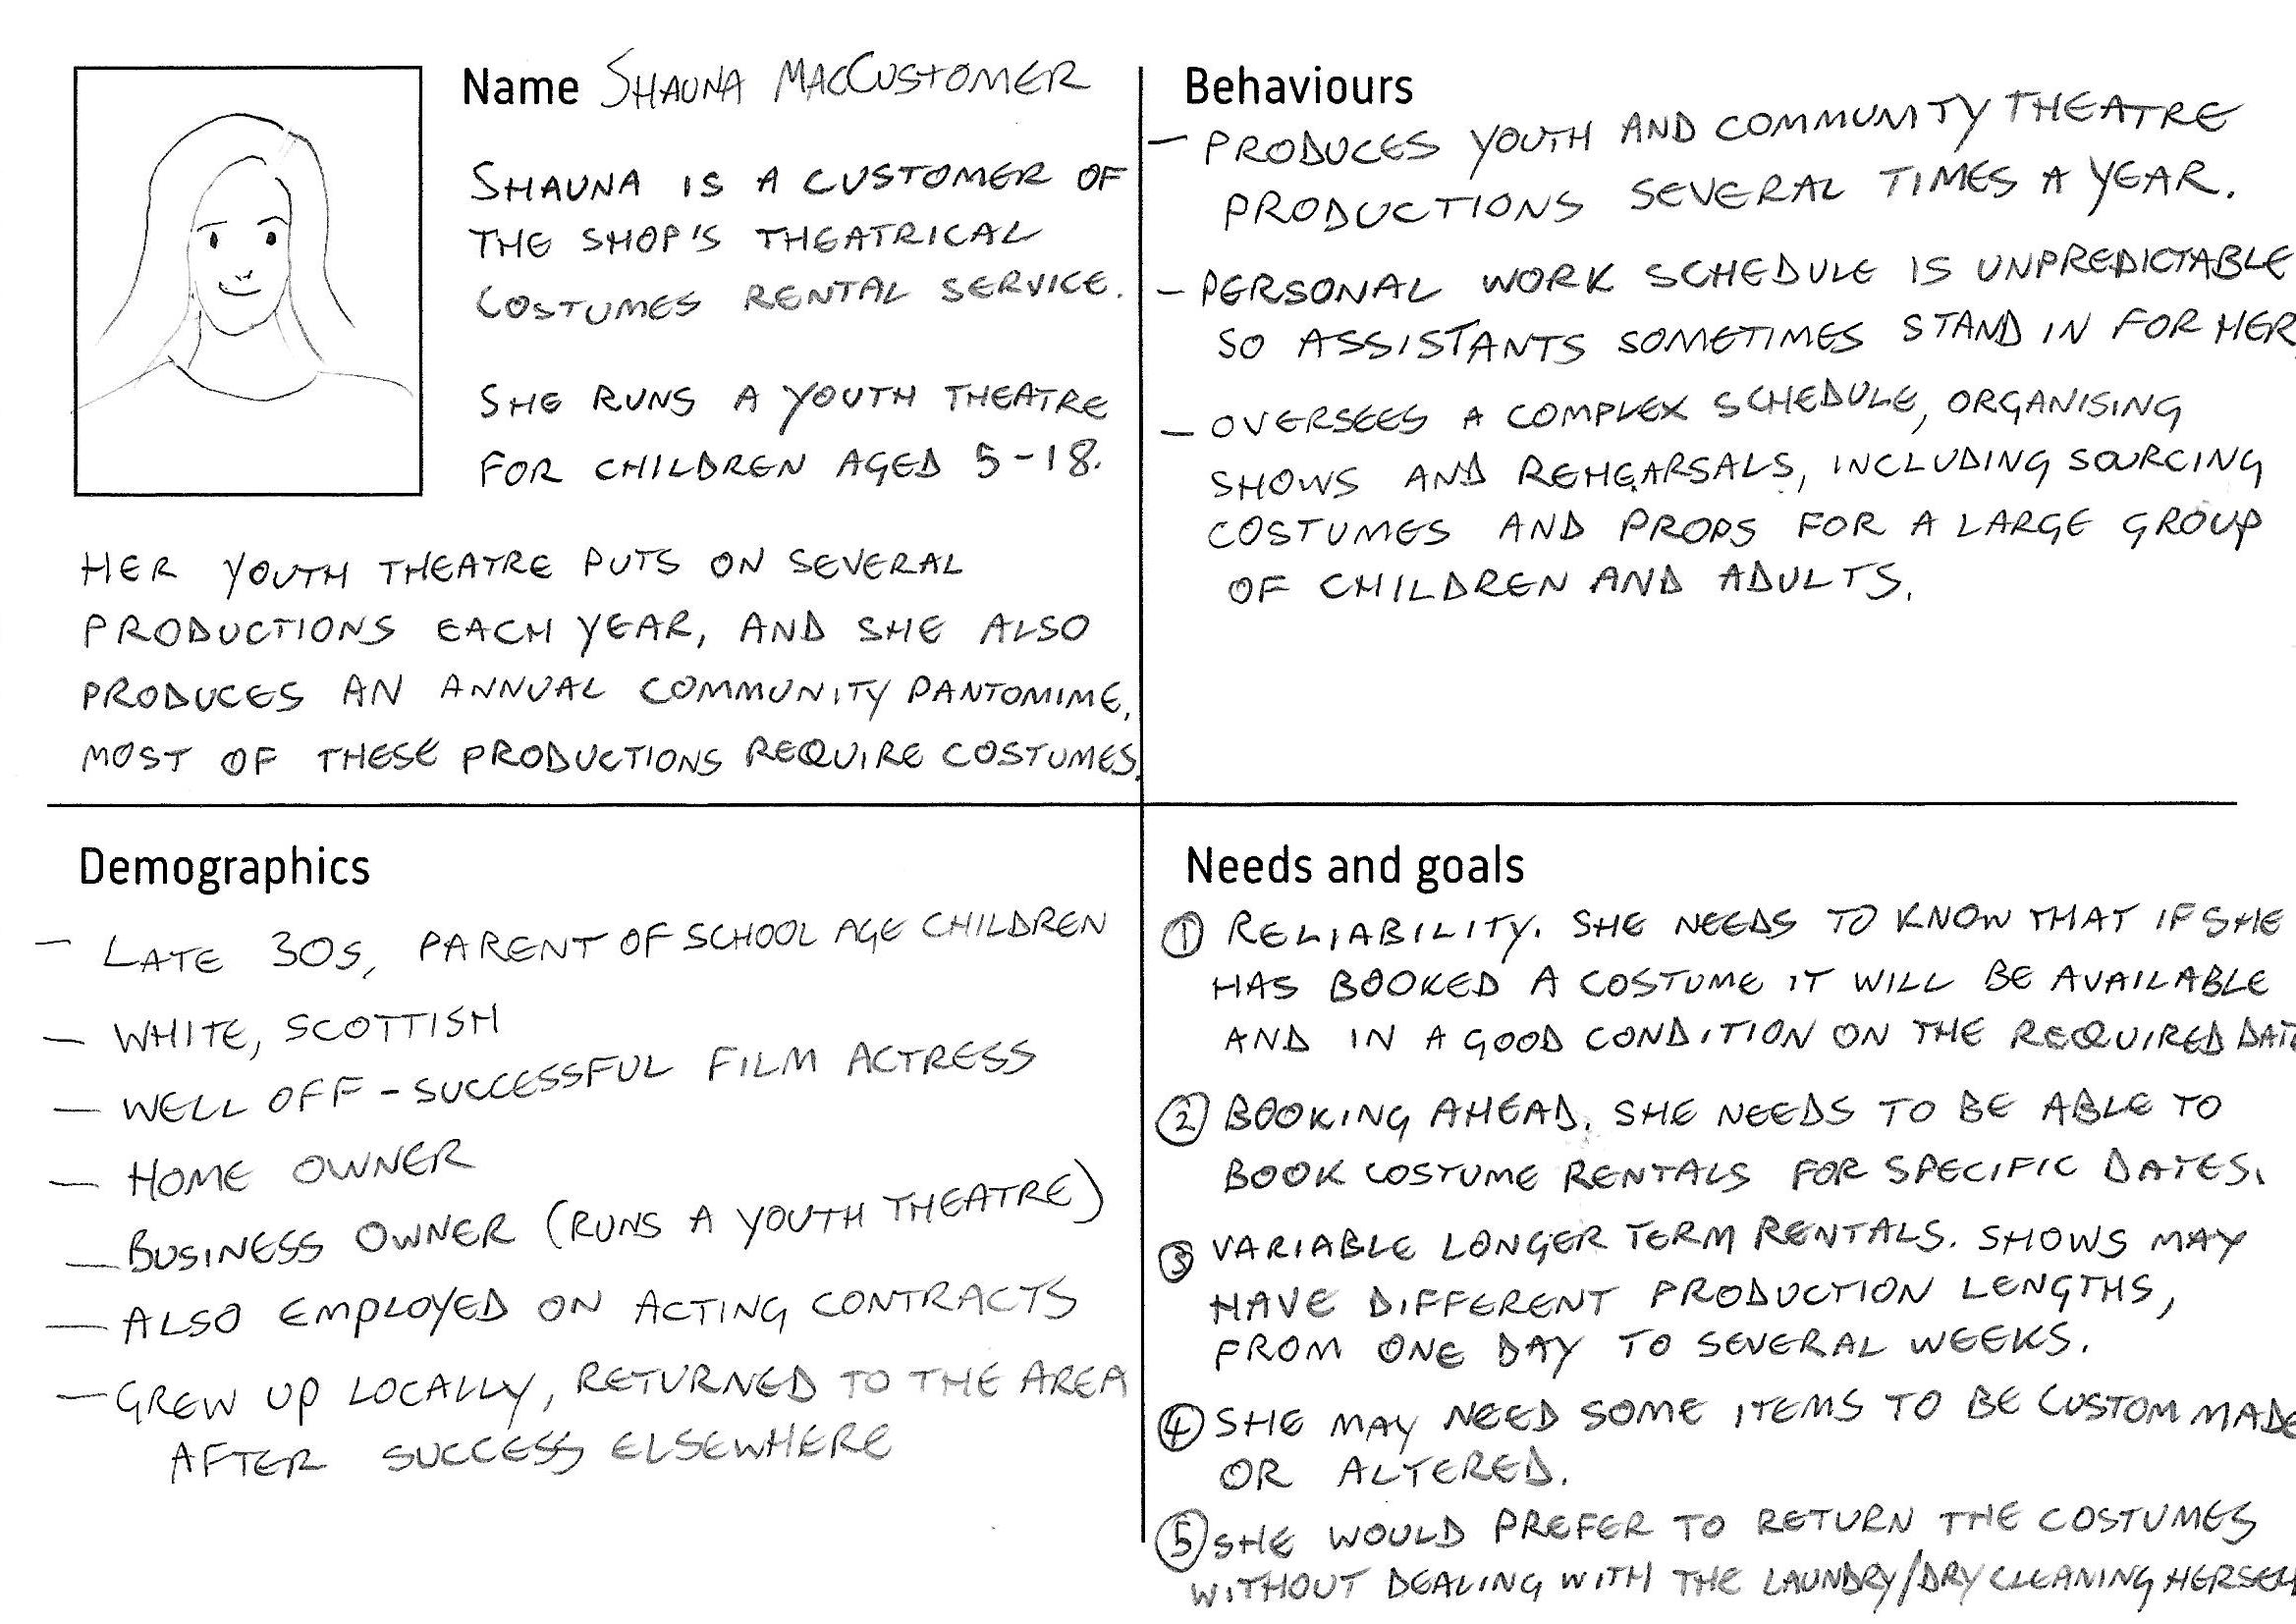 Name SHAUNA MACCUSTOMER
SHAUNA IS A CUSTOMER OF
THE SHOP'S THEATRICAL
COSTUMES RENTAL SERVICE.
SHE RUNS A YOUTH THEATRE
FOR CHILDREN AGED 5-18.
HER YOUTH THEATRE PUTS ON SEVERAL
PRODUCTIONS EACH YEAR, AND SHE ALSO
PRODUCES AN ANNUAL COMMUNITY PANTOMIME.
MOST OF THESE PRODUCTIONS REQUIRE COSTUMES.
Behaviours
- PRODUCES YOUTH AND COMMUNITY THEATRE
PRODUCTIONS SEVERAL TIMES A YEAR.
- PERSONAL WORK SCHEDULE IS UNPREDICTABLE
SO ASSISTANTS SOMETIMES STAND IN FOR HER
- OVERSEES A COMPLEX SCHEDULE, ORGANISING
SHOWS AND REHEARSALS, INCLUDING SOURCING
COSTUMES AND PROPS FOR A LARGE GROUP
OF CHILDREN AND ADULTS.
Demographics
- LATE 30S, PARENT OF SCHOOL AGE CHILDREN
- WHITE, SCOTTISH
- WELL OFF - SUCCESSFUL FILM ACTRESS
- HOME OWNER
- BUSINESS OWNER (RUNS A YOUTH THEATRE)
- ALSO EMPLOYED ON ACTING CONTRACTS
- GREW UP LOCALLY, RETURNED TO THE AREA
AFTER SUCCESS ELSEWHERE
Needs and goals
① RELIABILITY. SHE NEEDS TO KNOW THAT IF SHE
HAS BOOKED A COSTUME IT WILL BE AVAILABLE
AND IN A GOOD CONDITION ON THE REQUIRED DAT
② BOOKING AHEAD. SHE NEEDS TO BE ABLE TO
BOOK COSTUME RENTALS FOR SPECIFIC DATES.
③ VARIABLE LONGER TERM RENTALS. SHOWS MAY
HAVE DIFFERENT PRODUCTION LENGTHS,
FROM ONE DAY TO SEVERAL WEEKS.
④ SHE MAY NEED SOME ITEMS TO BE CUSTOM MADE
OR ALTERED.
⑤ SHE WOULD PREFER TO RETURN THE COSTUMES
WITHOUT DEALING WITH THE LAUNDRY/DRY CLEANING HERSELF